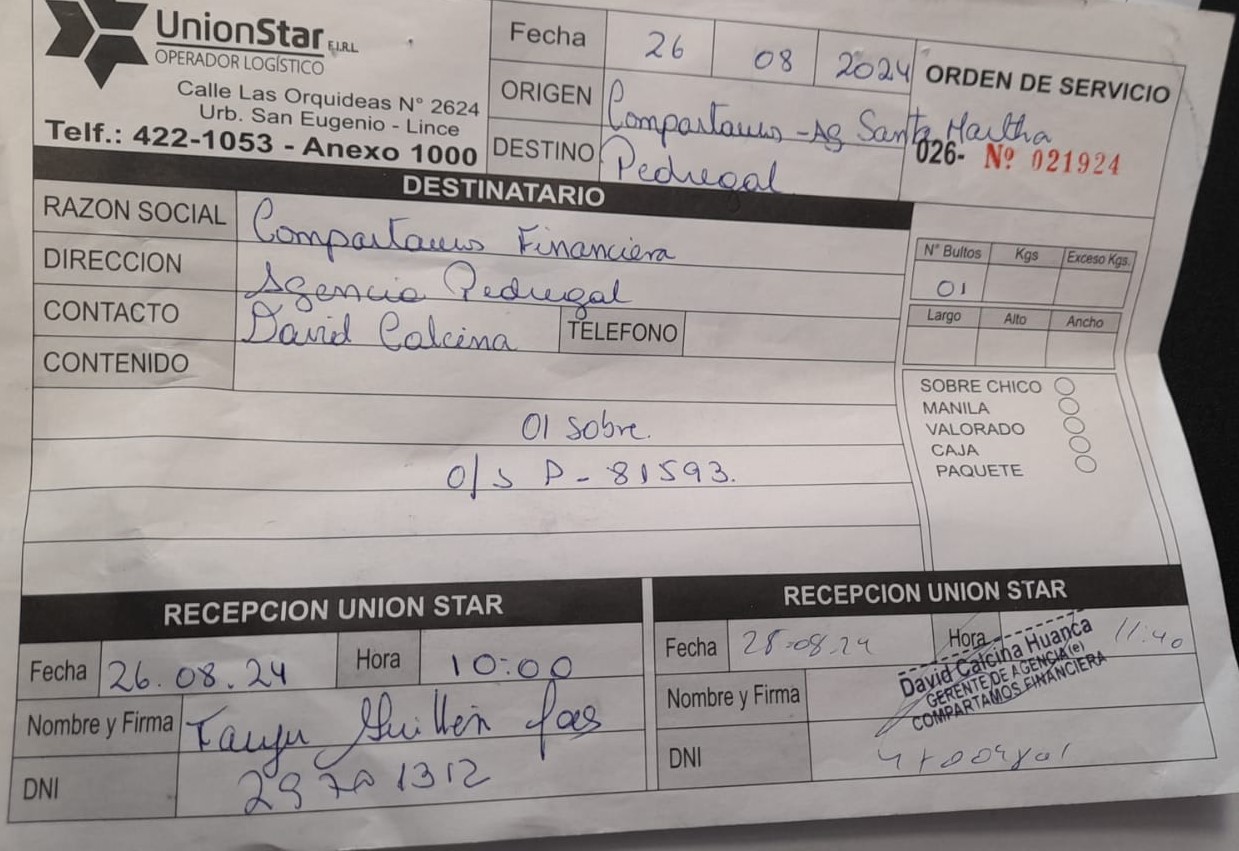 UnionStar E.I.R.L.
OPERADOR LOGÍSTICO
Calle Las Orquideas N° 2624
Urb. San Eugenio - Lince
Telf.: 422-1053 - Anexo 1000
Fecha 26 08 2024
ORIGEN Compartamos - Ag Santa Martha
DESTINO Pedregal
ORDEN DE SERVICIO
026- Nº 021924
DESTINATARIO
RAZON SOCIAL Compartamos Financiera
DIRECCION Agencia Pedregal
CONTACTO David Calcina TELEFONO
CONTENIDO
01 sobre.
O/S P - 81593.
N° Bultos Kgs Exceso Kgs.
01
Largo Alto Ancho
SOBRE CHICO
MANILA
VALORADO
CAJA
PAQUETE
RECEPCION UNION STAR
Fecha 26.08.24 Hora 10:00
Nombre y Firma Guillén
DNI
RECEPCION UNION STAR
Fecha 28.08.24 Hora 11:40
Nombre y Firma
David Calcina Huanca
GERENTE DE AGENCIA (e)
COMPARTAMOS FINANCIERA
DNI